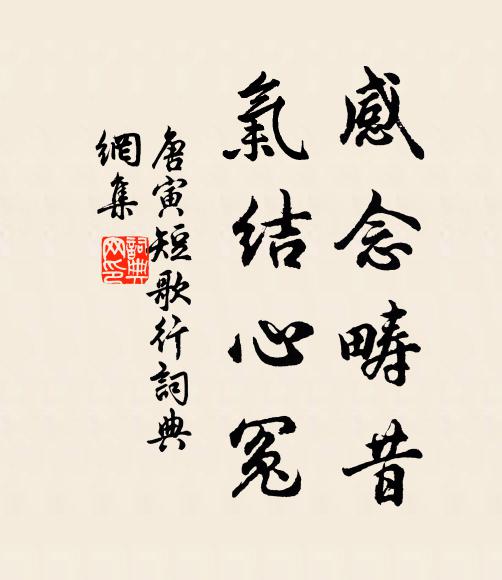 感念疇昔
氣結心冤
唐寅短歌行詞典
網集
詞典
网印